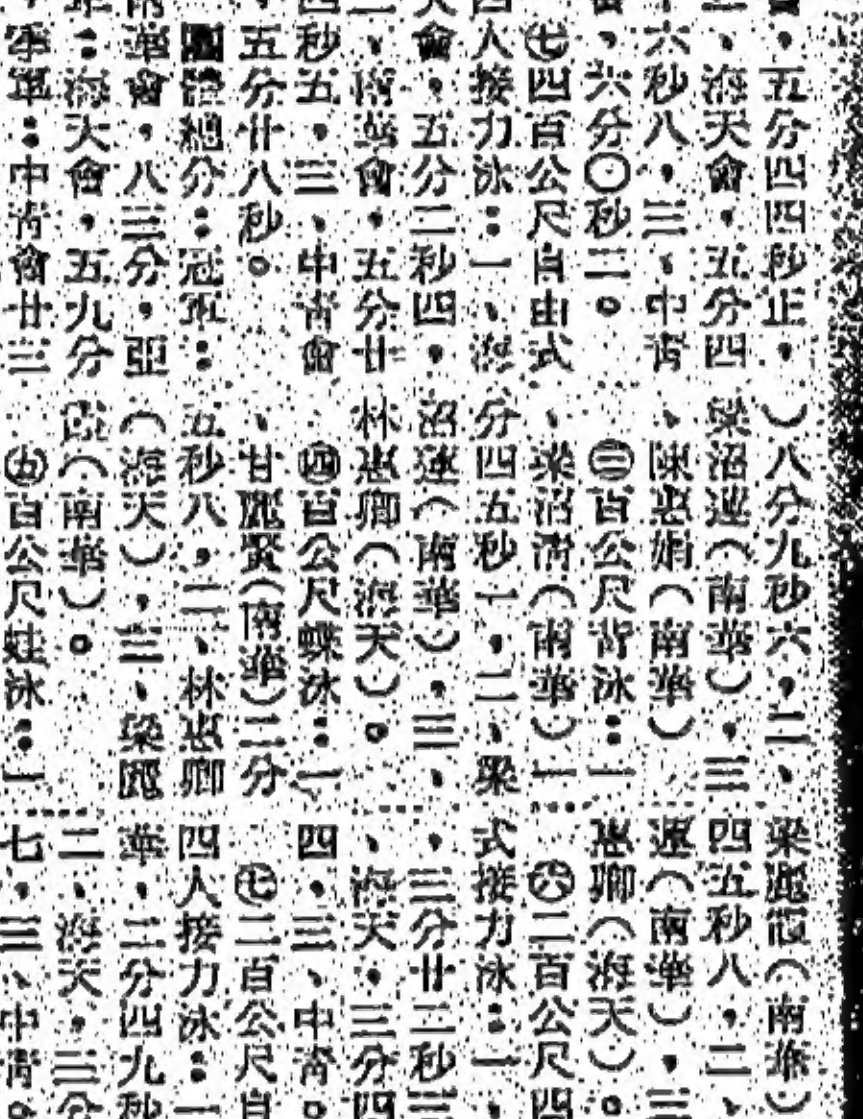 會，五分四四秒止，
二、海天會，五分四
六秒八，三、中青
會，六分〇秒二。
㊆四百公尺自由式
四人接力泳：一、海
天會，五分二秒四，
二、南華會，五分廿
四秒五，三、中青會
，五分廿八秒。
團體總分：冠軍：
南華會，八三分，亞
軍：海天會，五九分
季軍：中青會廿三
）八分九秒六，二、
梁沼蓮（南華），三
、陳惠娟（南華）
㊂百公尺背泳：一
、梁沼清（南華）一
分四五秒一，二、梁
沼蓮（南華），三、
林惠卿（海天）。
㊃百公尺蝶泳：一
、甘麗賢（南華）二分
五秒八，二、林惠卿
（海天），三、梁麗
霞（南華）。
㊄百公尺蛙泳：一
梁麗霞（南華）
四五秒八，二、
蓮（南華），三
惠卿（海天）。
㊅二百公尺四
式接力泳：一、
，三分廿二秒三
、海天，三分四
四，三、中青。
㊆二百公尺自
四人接力泳：一
華，二分四九秒
二、海天，三分
七，三、中青。